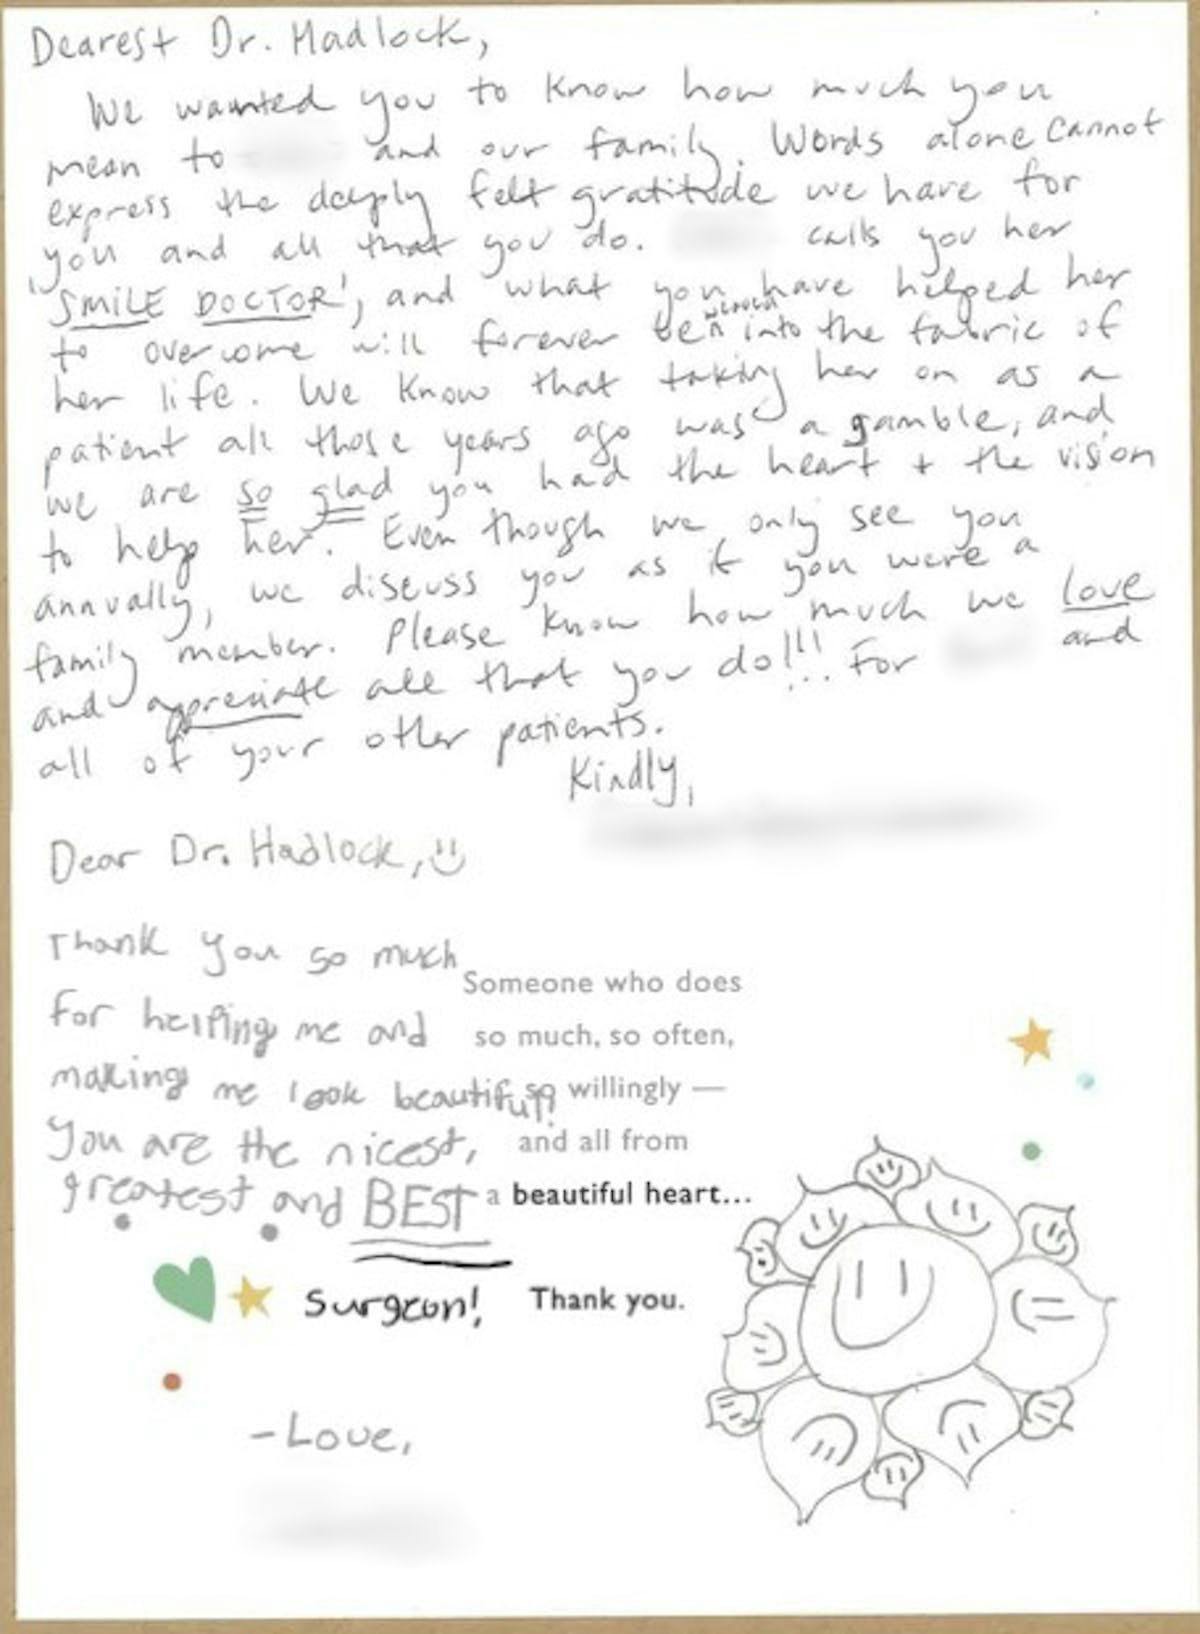 Dearest Dr. Hadlock,
We wanted you to know how much you
mean to and our family. Words alone cannot
express the deeply felt gratitude we have for
you and all that you do. calls you her
'SMILE DOCTOR', and what you have helped her
to overcome will forever be woven into the fabric of
her life. We know that taking her on as a
patient all those years ago was a gamble, and
we are so glad you had the heart + the vision
to help her. Even though we only see you
annually, we discuss you as if you were a
family member. Please know how much we love
and appreciate all that you do!!! For and
all of your other patients.
Kindly,
Dear Dr. Hadlock,
Thank you so much
for helping me and
making me look beautiful!
You are the nicest,
greatest and BEST
Surgeon!
-Love,
Someone who does
so much, so often,
so willingly —
and all from
a beautiful heart...
Thank you.